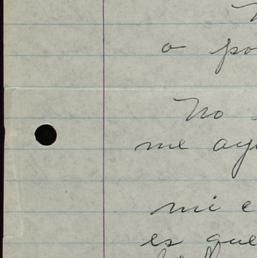 a po
No
me ay
mi e
es que